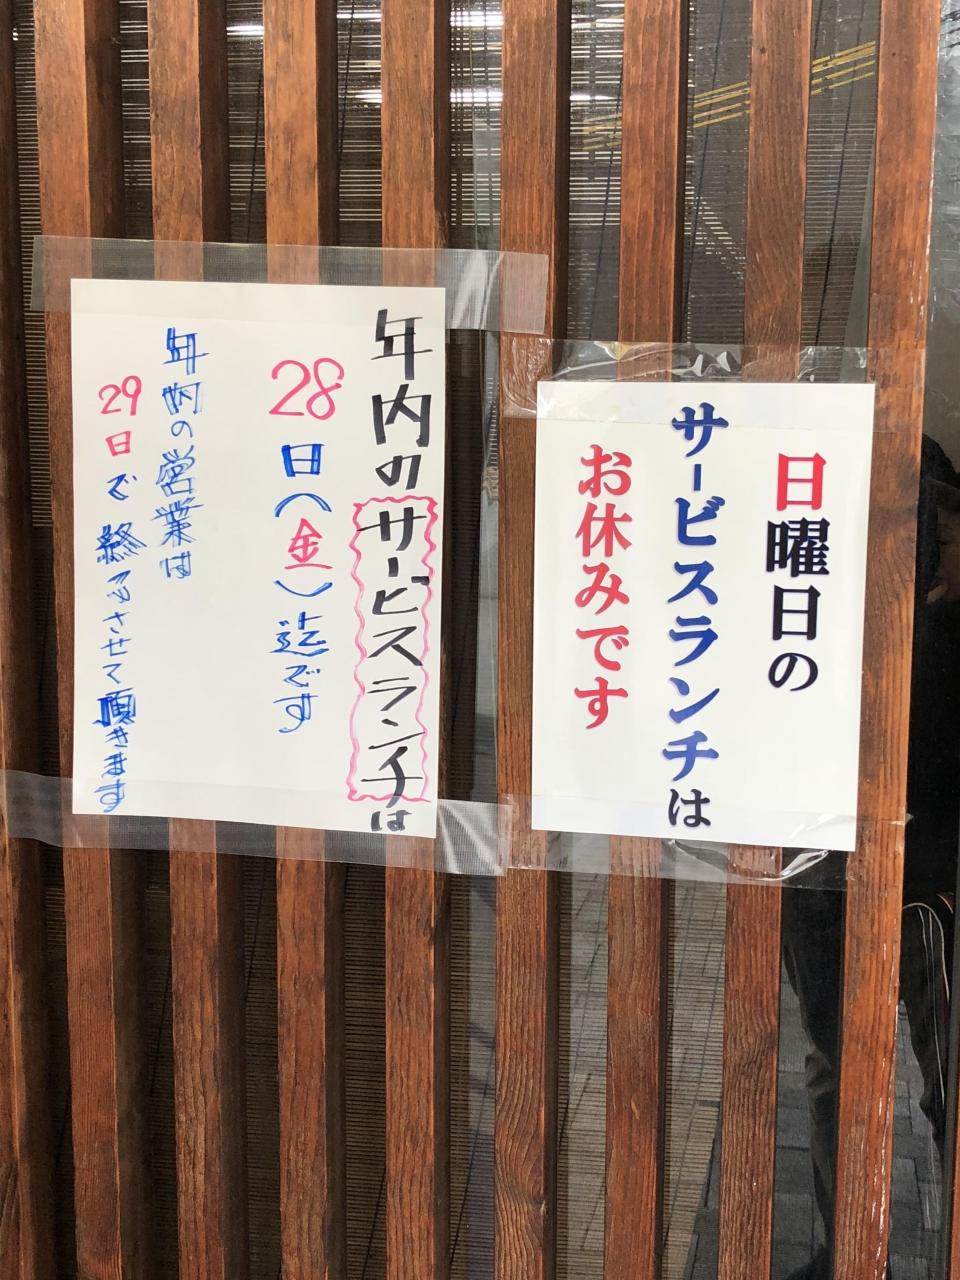 日曜日の
サービスランチは
お休みです
年内のサービスランチは
28日(金)迄です
年内の営業は
29日で終らさせて頂きます